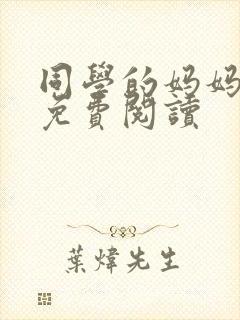 同學的妈妈
免費閱讀
葉煒先生